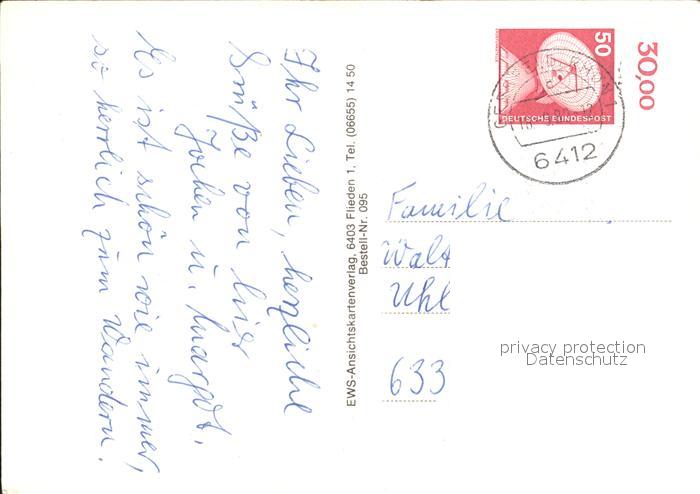 Ihr Lieben, herzliche
Grüße von hier
Jochen u. Margot.
Es ist schön wie immer,
so herrlich zum Wandern.
EWS-Ansichtskartenverlag, 6403 Flieden 1, Tel. (06655) 14 50
Bestell-Nr. 095
30,00
50
DEUTSCHE BUNDESPOST
6412
Familie
Walt
Uhl
633
privacy protection
Datenschutz